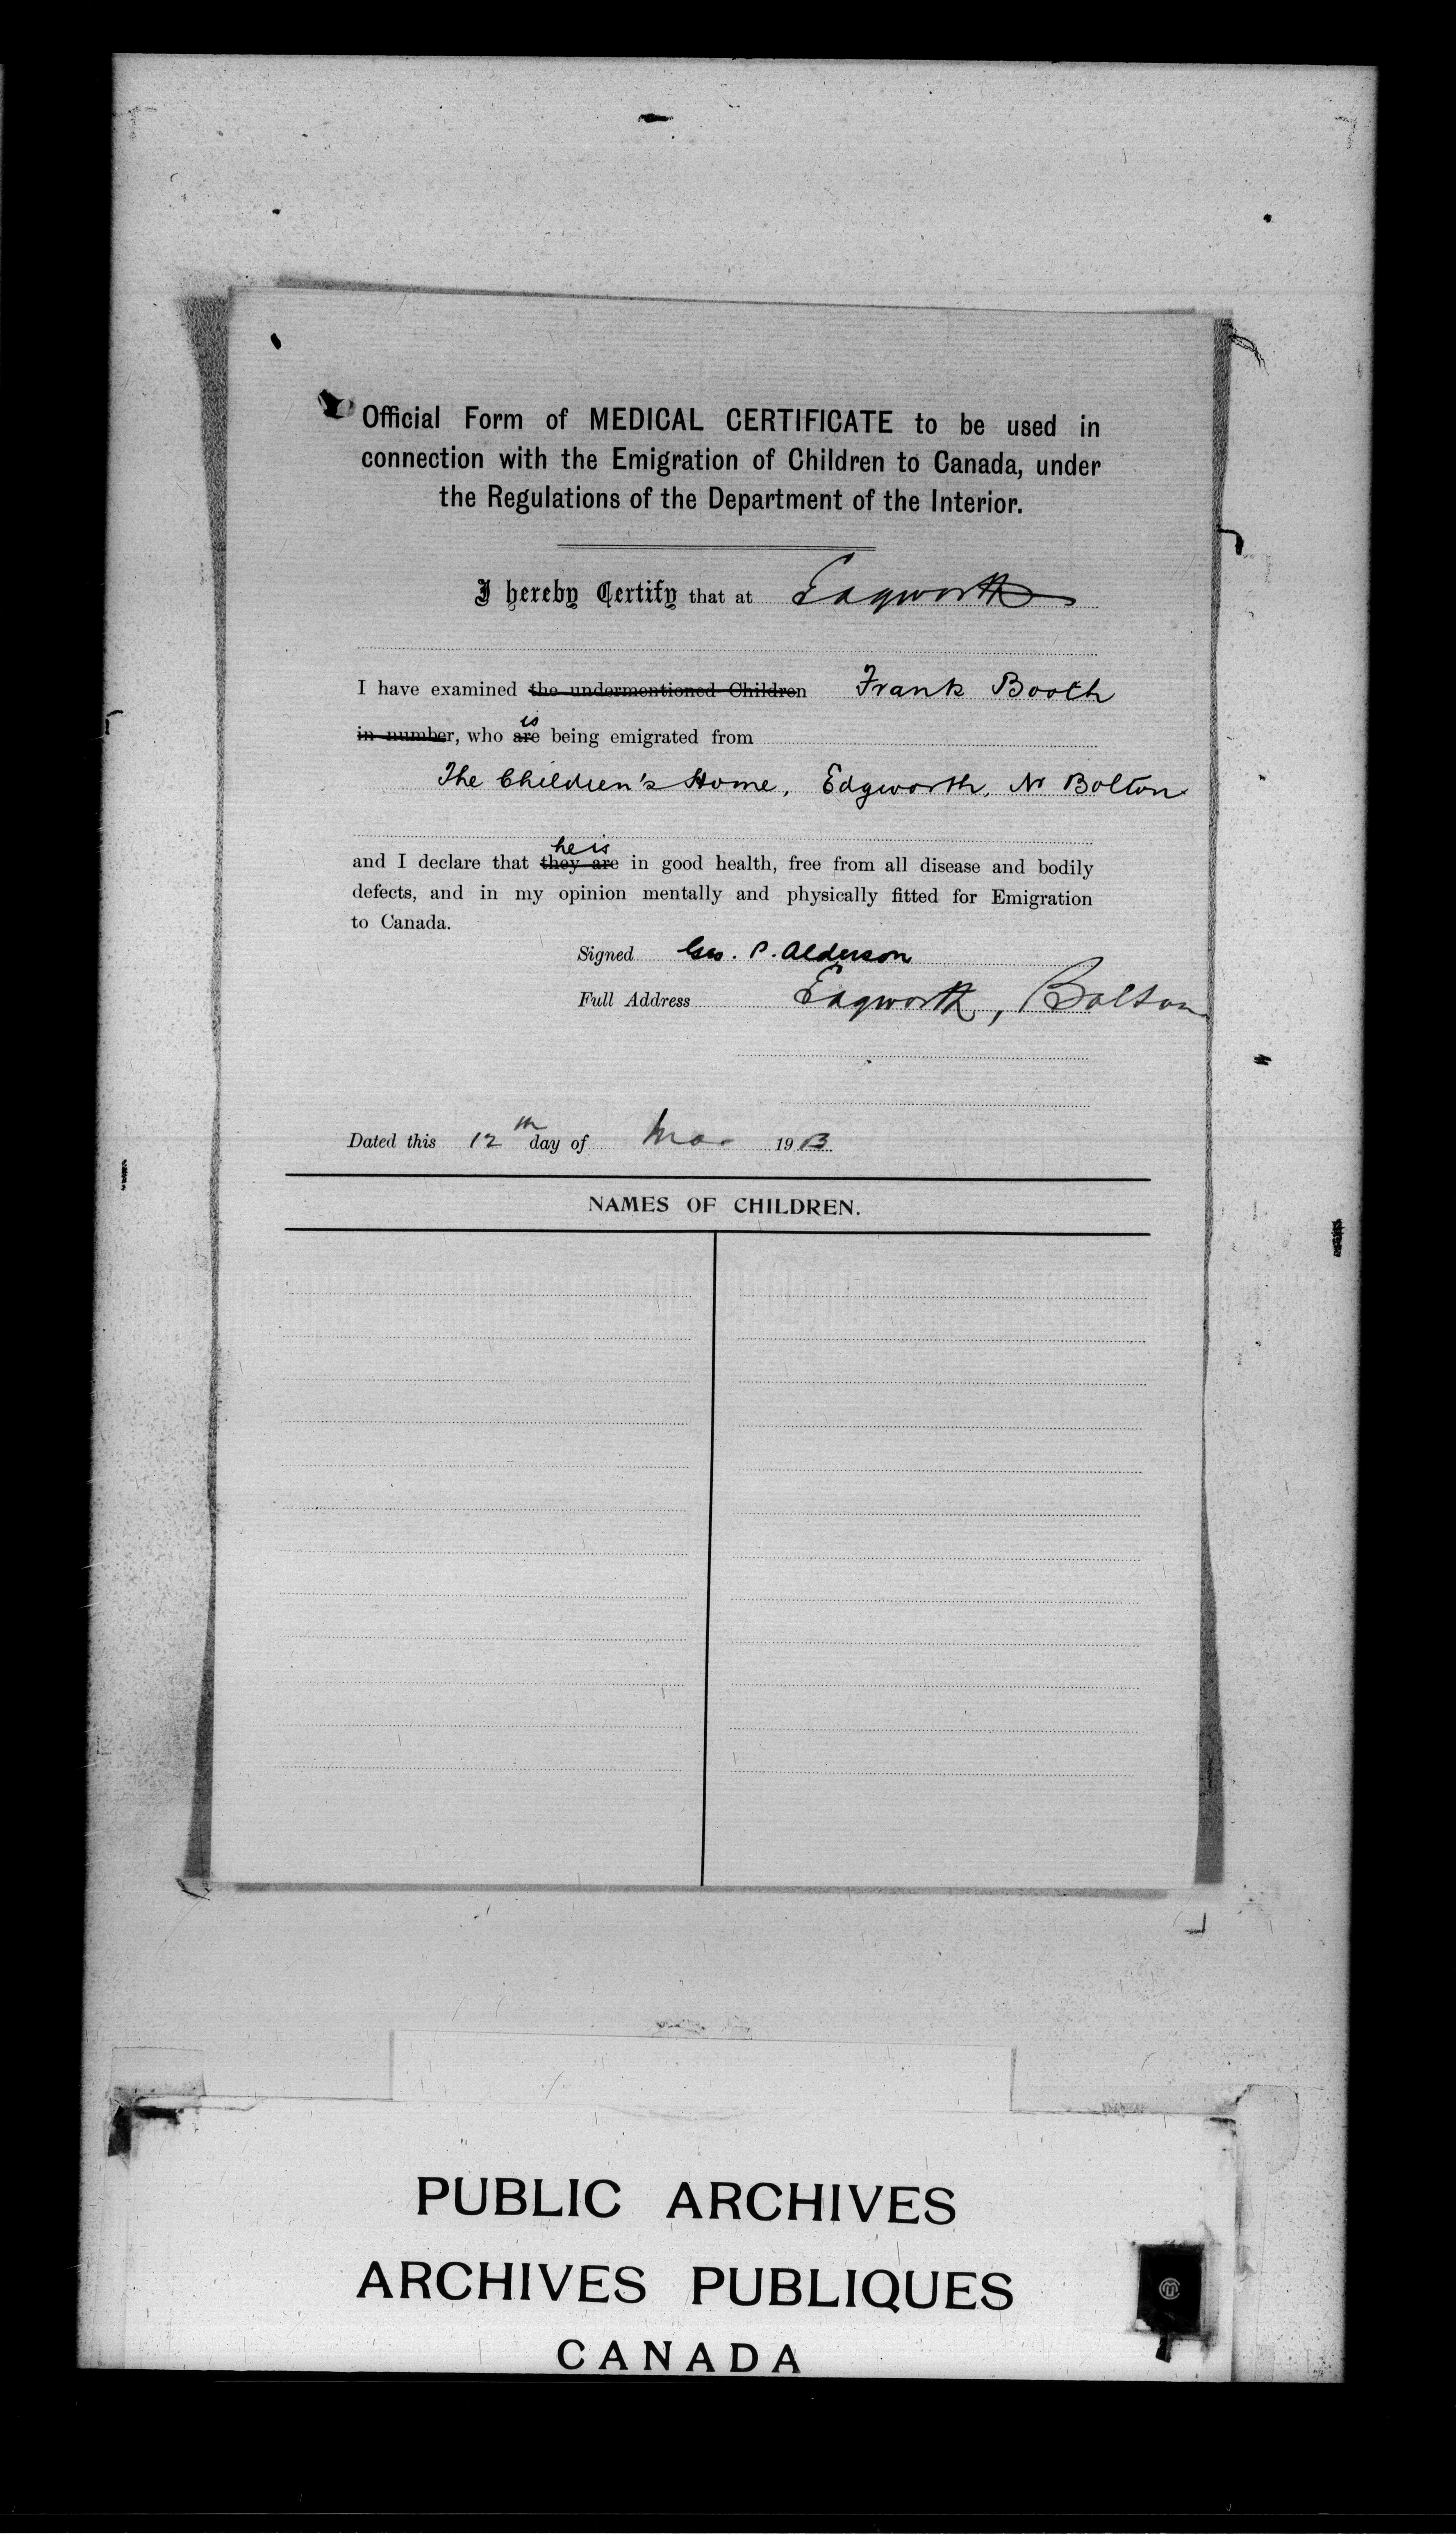 Official Form of MEDICAL CERTIFICATE to be used in
connection with the Emigration of Children to Canada, under
the Regulations of the Department of the Interior.
I hereby Certify that at Edgworth
I have examined the undermentioned Children Frank Booth
in number, who are is being emigrated from
The Children's Home, Edgworth, Nr Bolton
and I declare that they are he is in good health, free from all disease and bodily
defects, and in my opinion mentally and physically fitted for Emigration
to Canada.
Signed Geo. P. Alderson
Full Address Edgworth, Bolton
Dated this 12th day of Mar 1913
NAMES OF CHILDREN.
PUBLIC ARCHIVES
ARCHIVES PUBLIQUES
CANADA